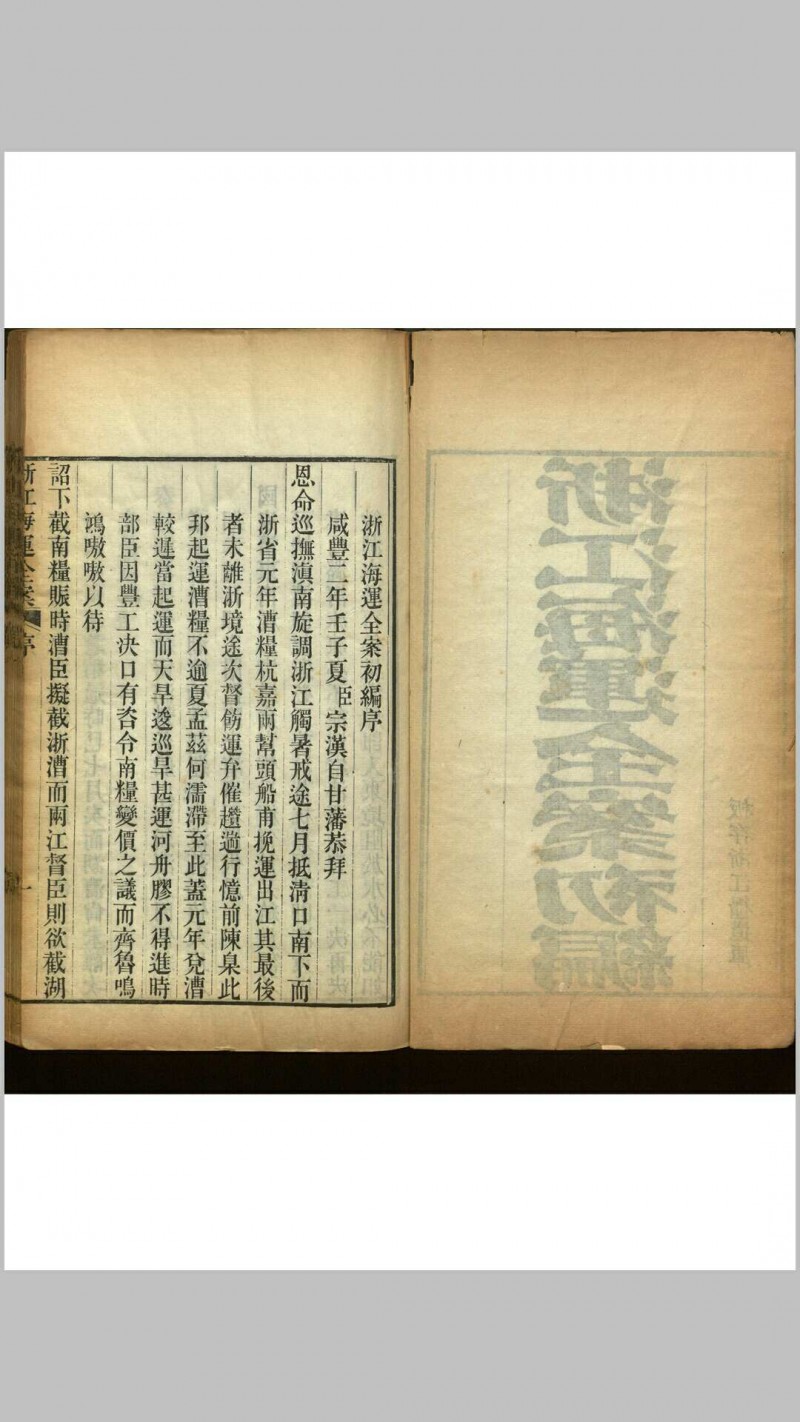 浙江海運全案初編序
咸豐二年壬子夏臣宗漢自甘藩恭拜
恩命巡撫滇南旋調浙江觸暑戒途七月抵淸口南下而
浙省元年漕糧杭嘉兩幫頭船甫挽運出江其最後
者未離浙境途次督飭運弁催趲遄行憶前陳臬此
邦起運漕糧不逾夏孟茲何濡滯至此蓋元年兌漕
較遲當起運而天旱逡巡旱甚運河舟膠不得進時
部臣因豐工決口有咨令南糧變價之議而齊魯鳴
鴻嗷嗷以待
詔下截南糧賑時漕臣擬截浙漕而兩江督臣則欲截湖
浙江海運全案 序 一
浙江海運全案初編